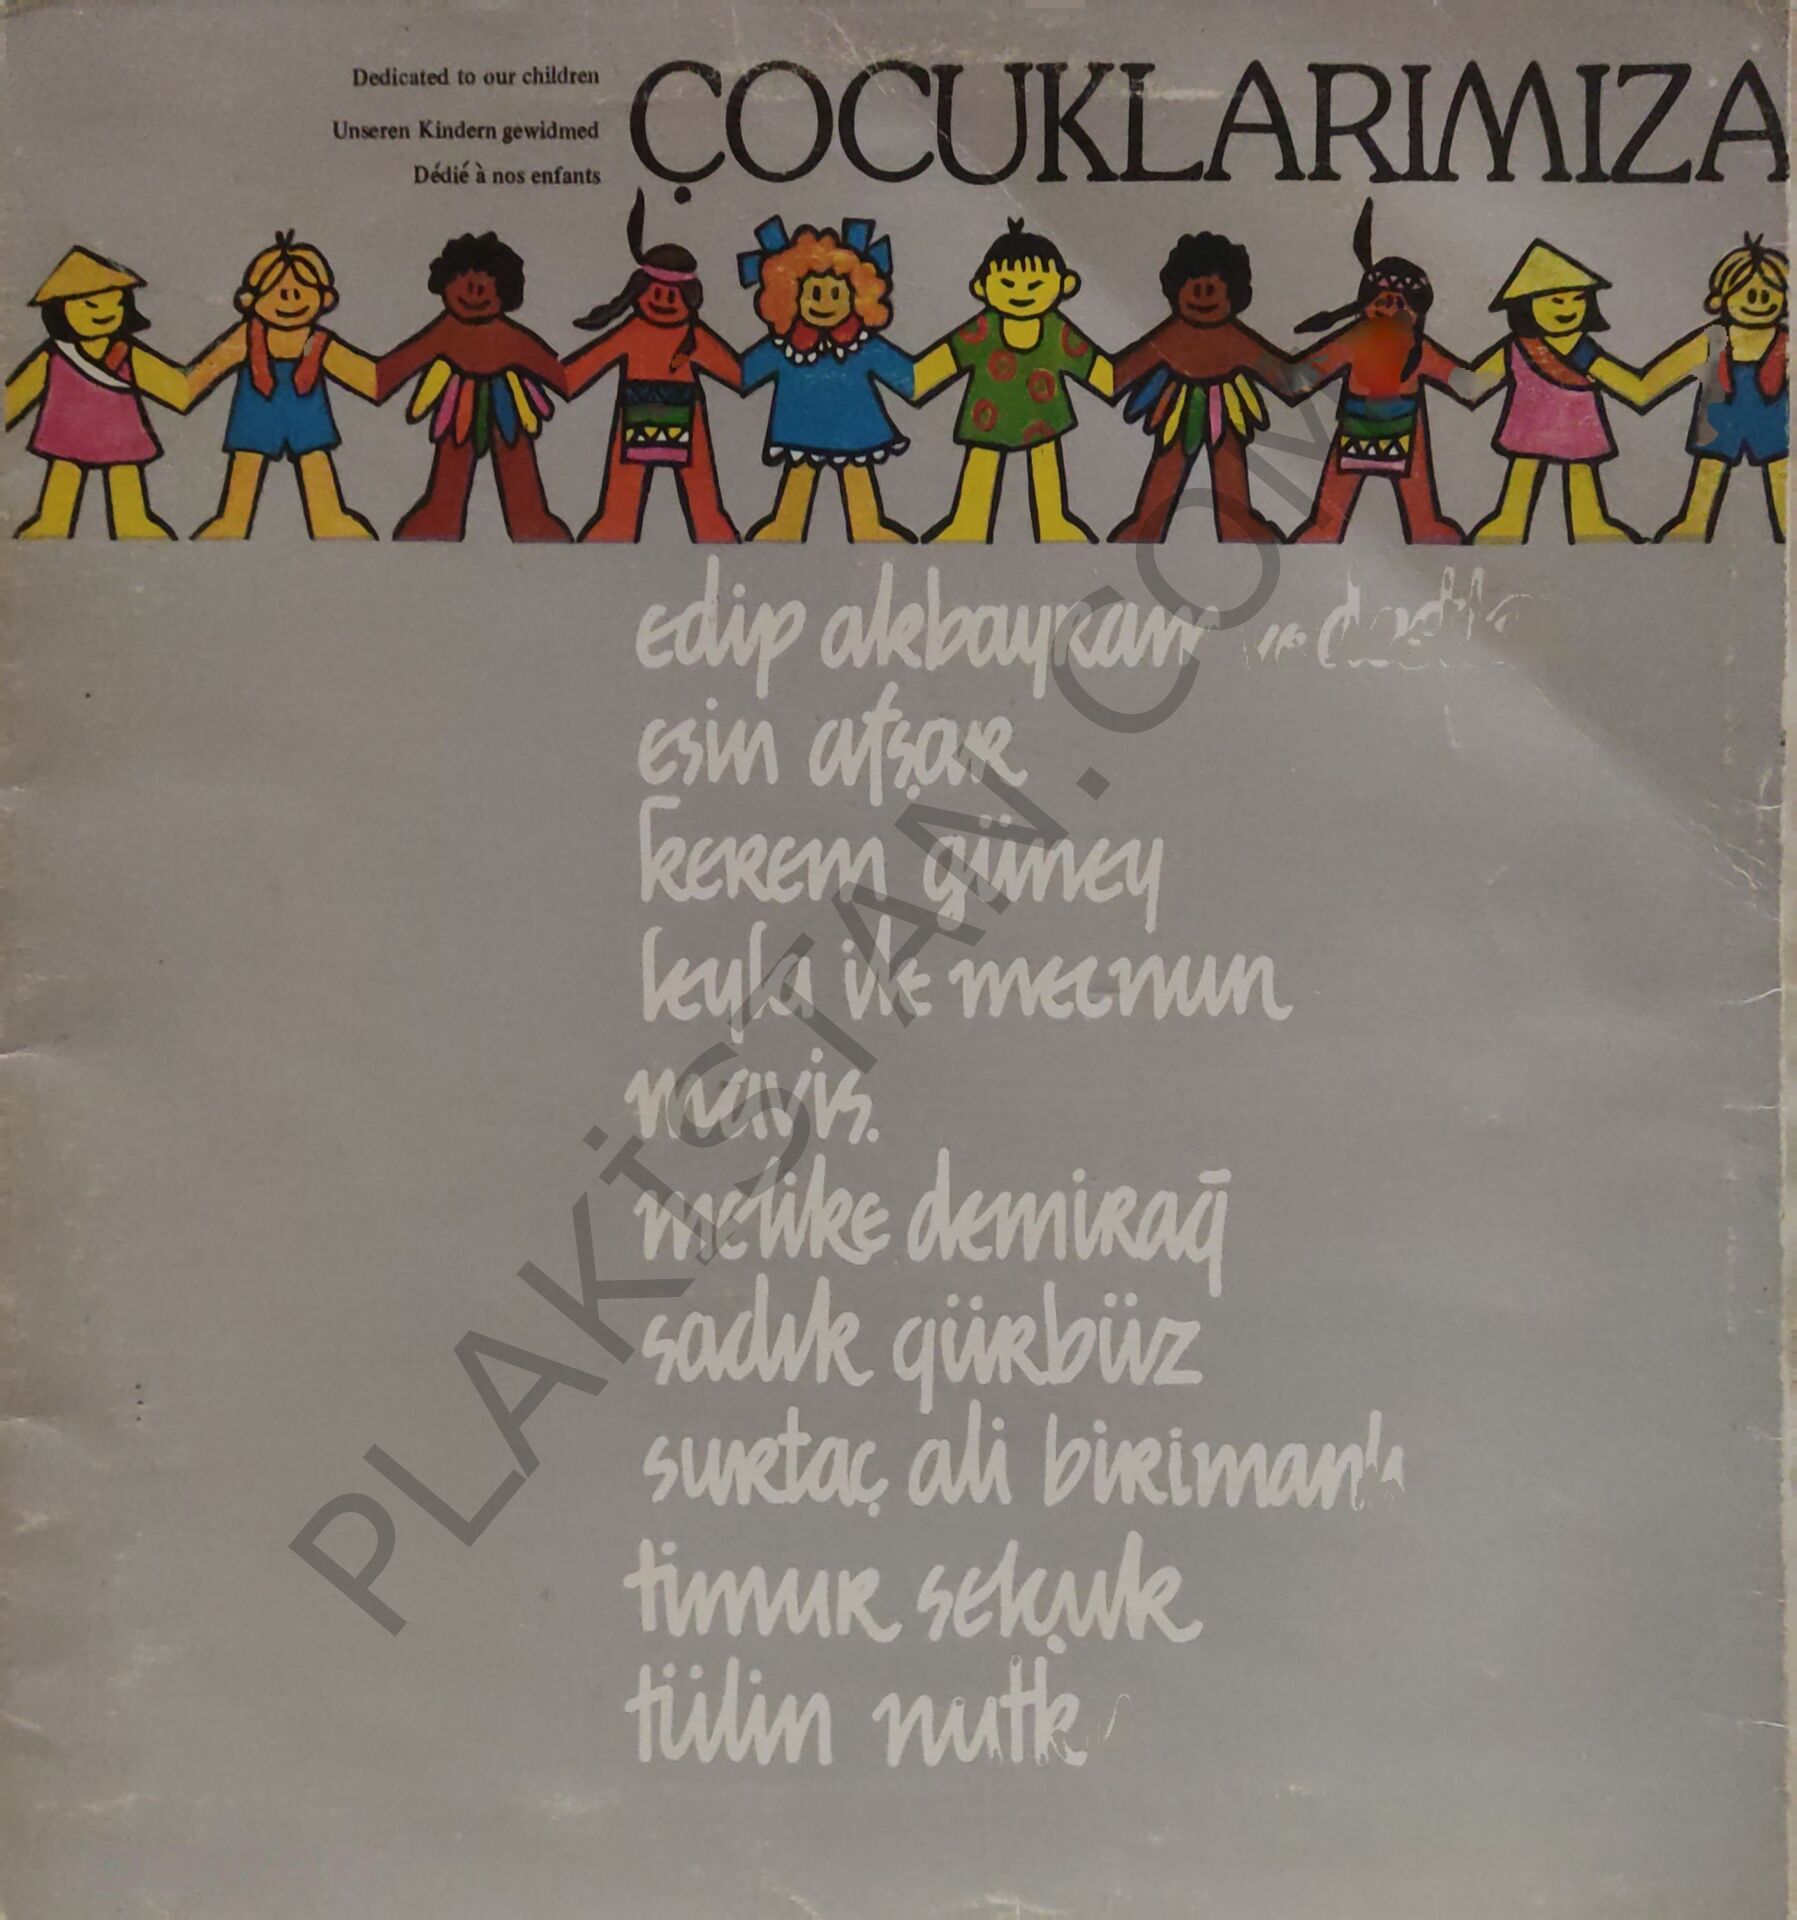 Dedicated to our children
Unseren Kindern gewidmed
Dédié à nos enfants
ÇOCUKLARIMIZA
edip akbayram ve
esin afşar
kerem güney
leyla ile mecnun
maviş.
melike demirağ
sadık gürbüz
surtaç ali birimanlı
timur selçuk
tülin
PLAKİSTAN.COM